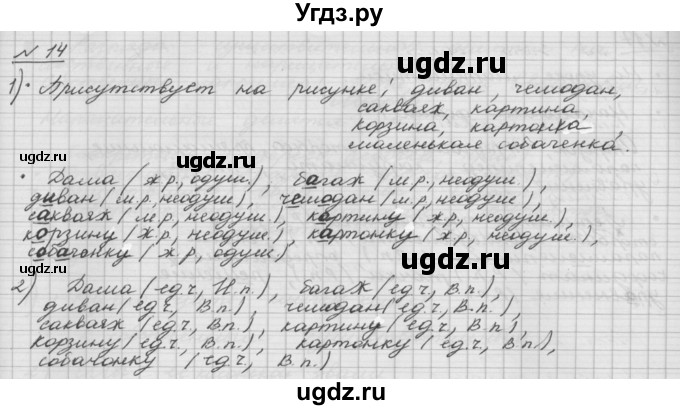 Угдз.ру
N 14
1) · Присутствует на рисунке: диван, чемодан,
саквояж, картина,
корзина, картонка
маленькая собаченка.
· Дама (ж.р., одуш.), багаж (м.р., неодуш.),
диван (м.р., неодуш), чемодан (м.р., неодуш),
саквояж (м.р., неодуш), картину (ж.р., неодуш),
корзину (ж.р., неодуш.), картонку (ж.р., неодуш),
собачонку (ж.р, одуш)
2) Дама (ед.ч, И.п.), багаж (ед.ч, В.п.),
диван (ед.ч, В.п.), чемодан (ед.ч, В.п.),
саквояж (ед.ч, В.п.), картину (ед.ч, В.п.),
корзину (ед.ч, В.п.), картонку (ед.ч, В.п.),
собачонку (ед.ч, В.п.)
Угдз.ру